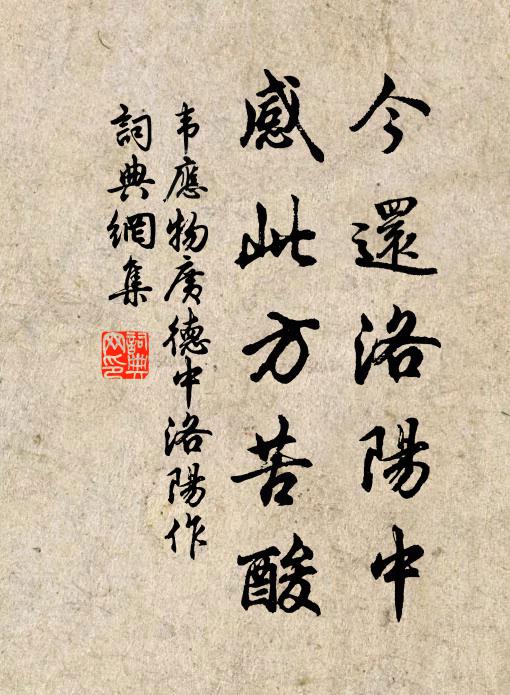 今還洛陽中
感此方苦酸
韦應物廣德中洛陽作
詞典網集
詞典網印